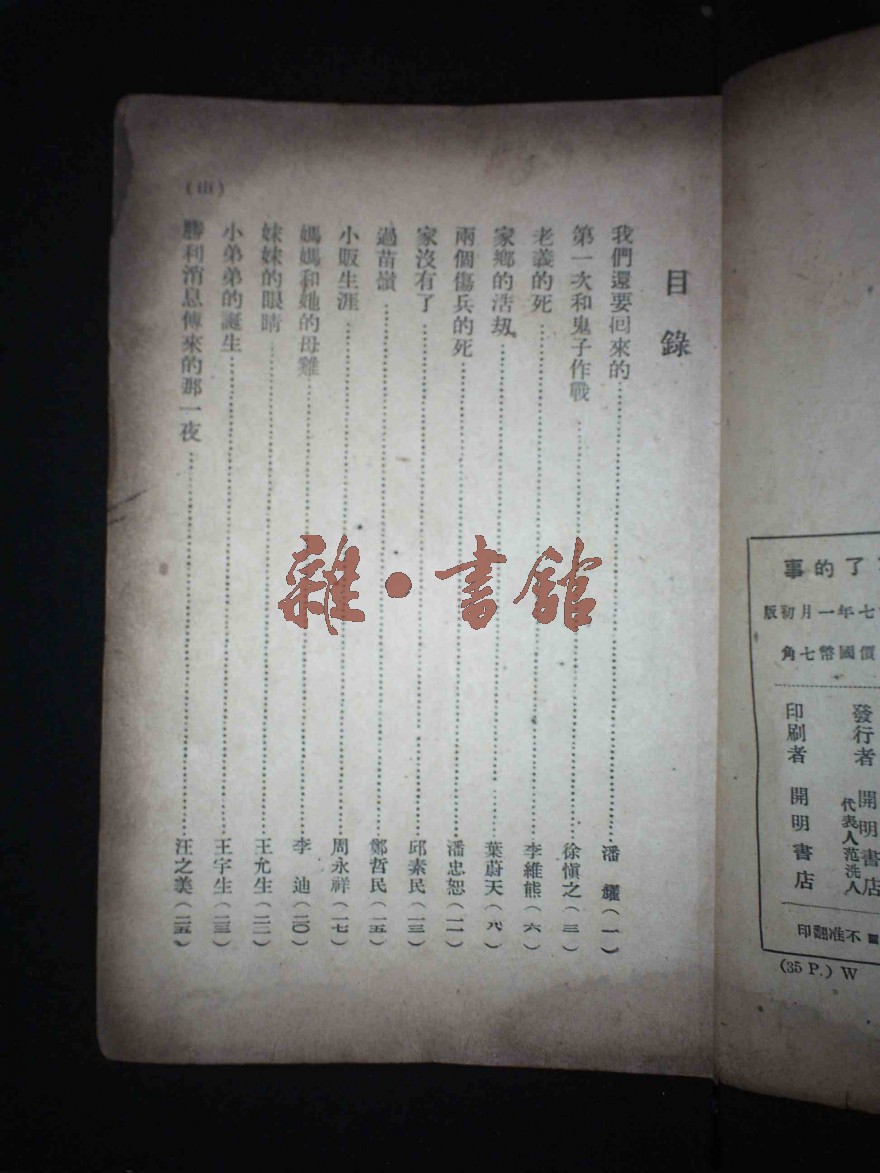 目錄
我們還要回來的……潘 耀(一)
第一次和鬼子作戰……徐愼之(三)
老義的死……李維熊(六)
家鄉的浩劫……葉蔚天(八)
兩個傷兵的死……潘忠恕(一一)
家沒有了……邱素民(一三)
過苗嶺……鄭哲民(一五)
小販生涯……周永祥(一七)
媽媽和她的母雞……李 迪(二〇)
妹妹的眼睛……王允生(二二)
小弟弟的誕生……王宇生(二三)
勝利消息傳來的那一夜……汪之美(二五)
雜·書館
了的事
七年一月初版
價國幣七角
發行者 開明書店
代表人范洗人
印刷者 開明書店
不准翻印
(35 P.) W